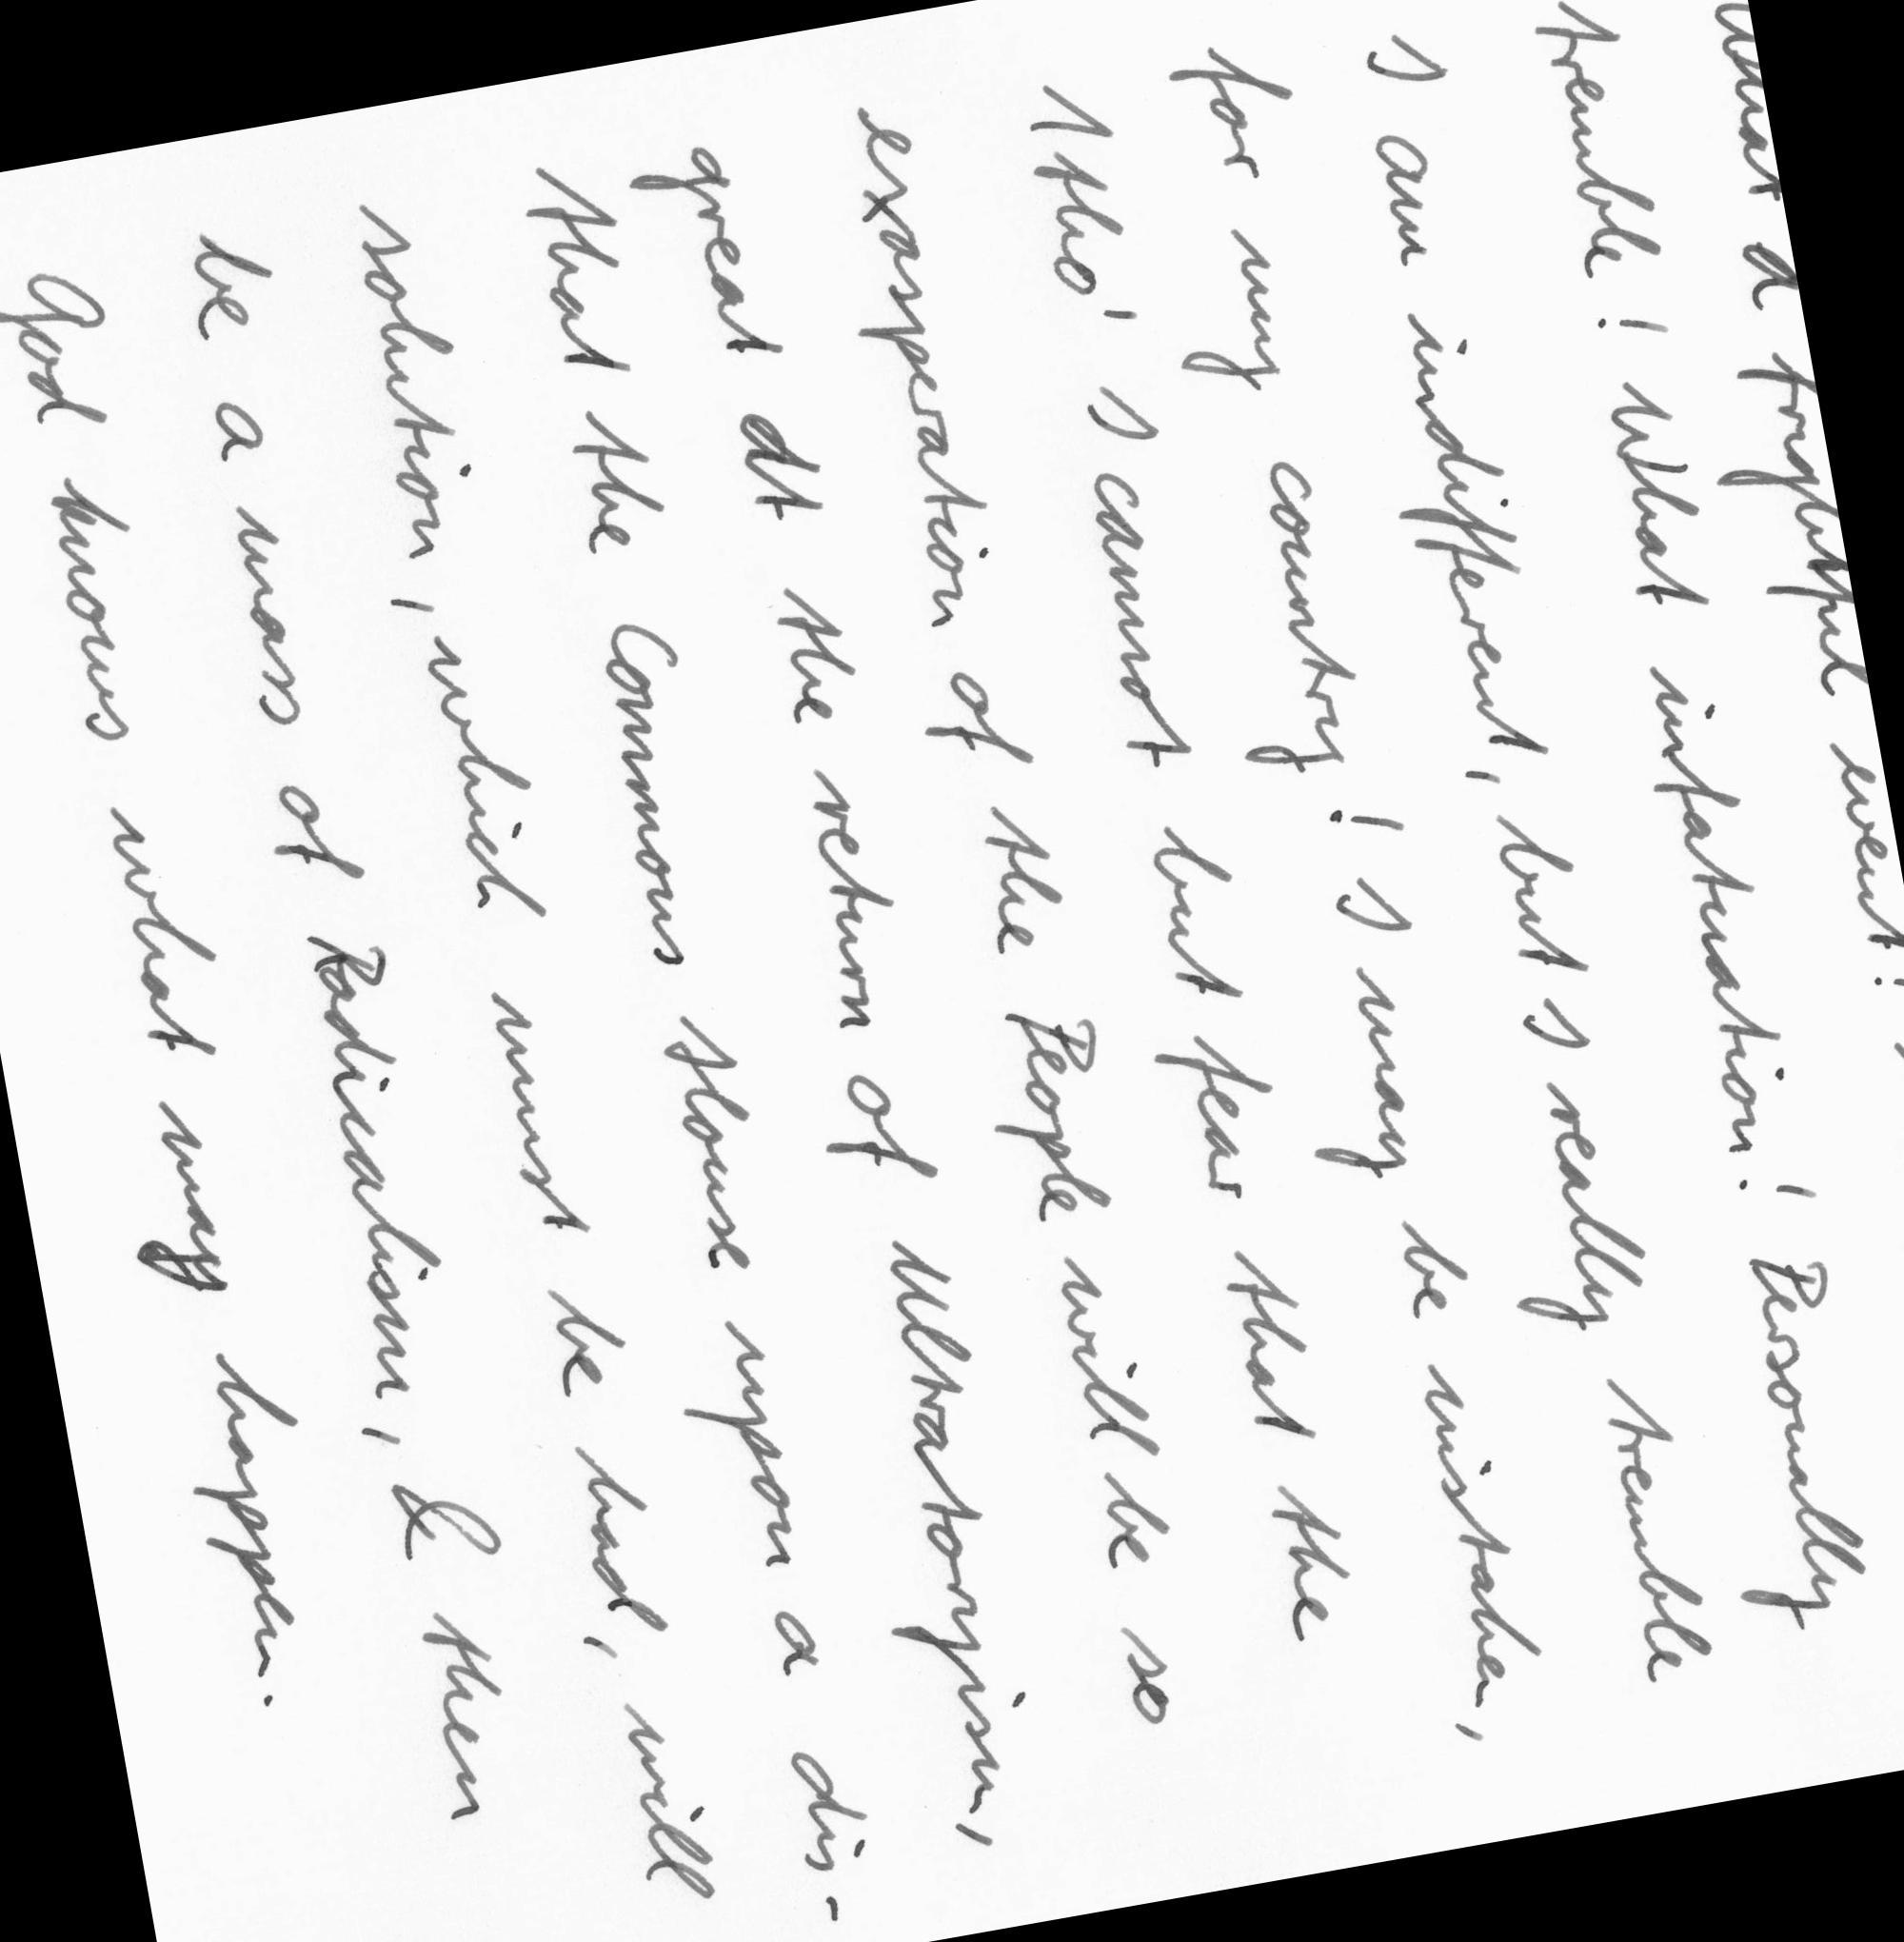 what a frightful event!
tremble! What infatuation! Personally
I am indifferent, but I really tremble
for my country! I may be mistaken,
tho' I cannot but fear that the
exasperation of the People will be so
great at the return of Ultratoryism,
that the Commons House upon a dis-
solution, which must be had, will
be a mass of Radicalism, & then
God knows what may happen.